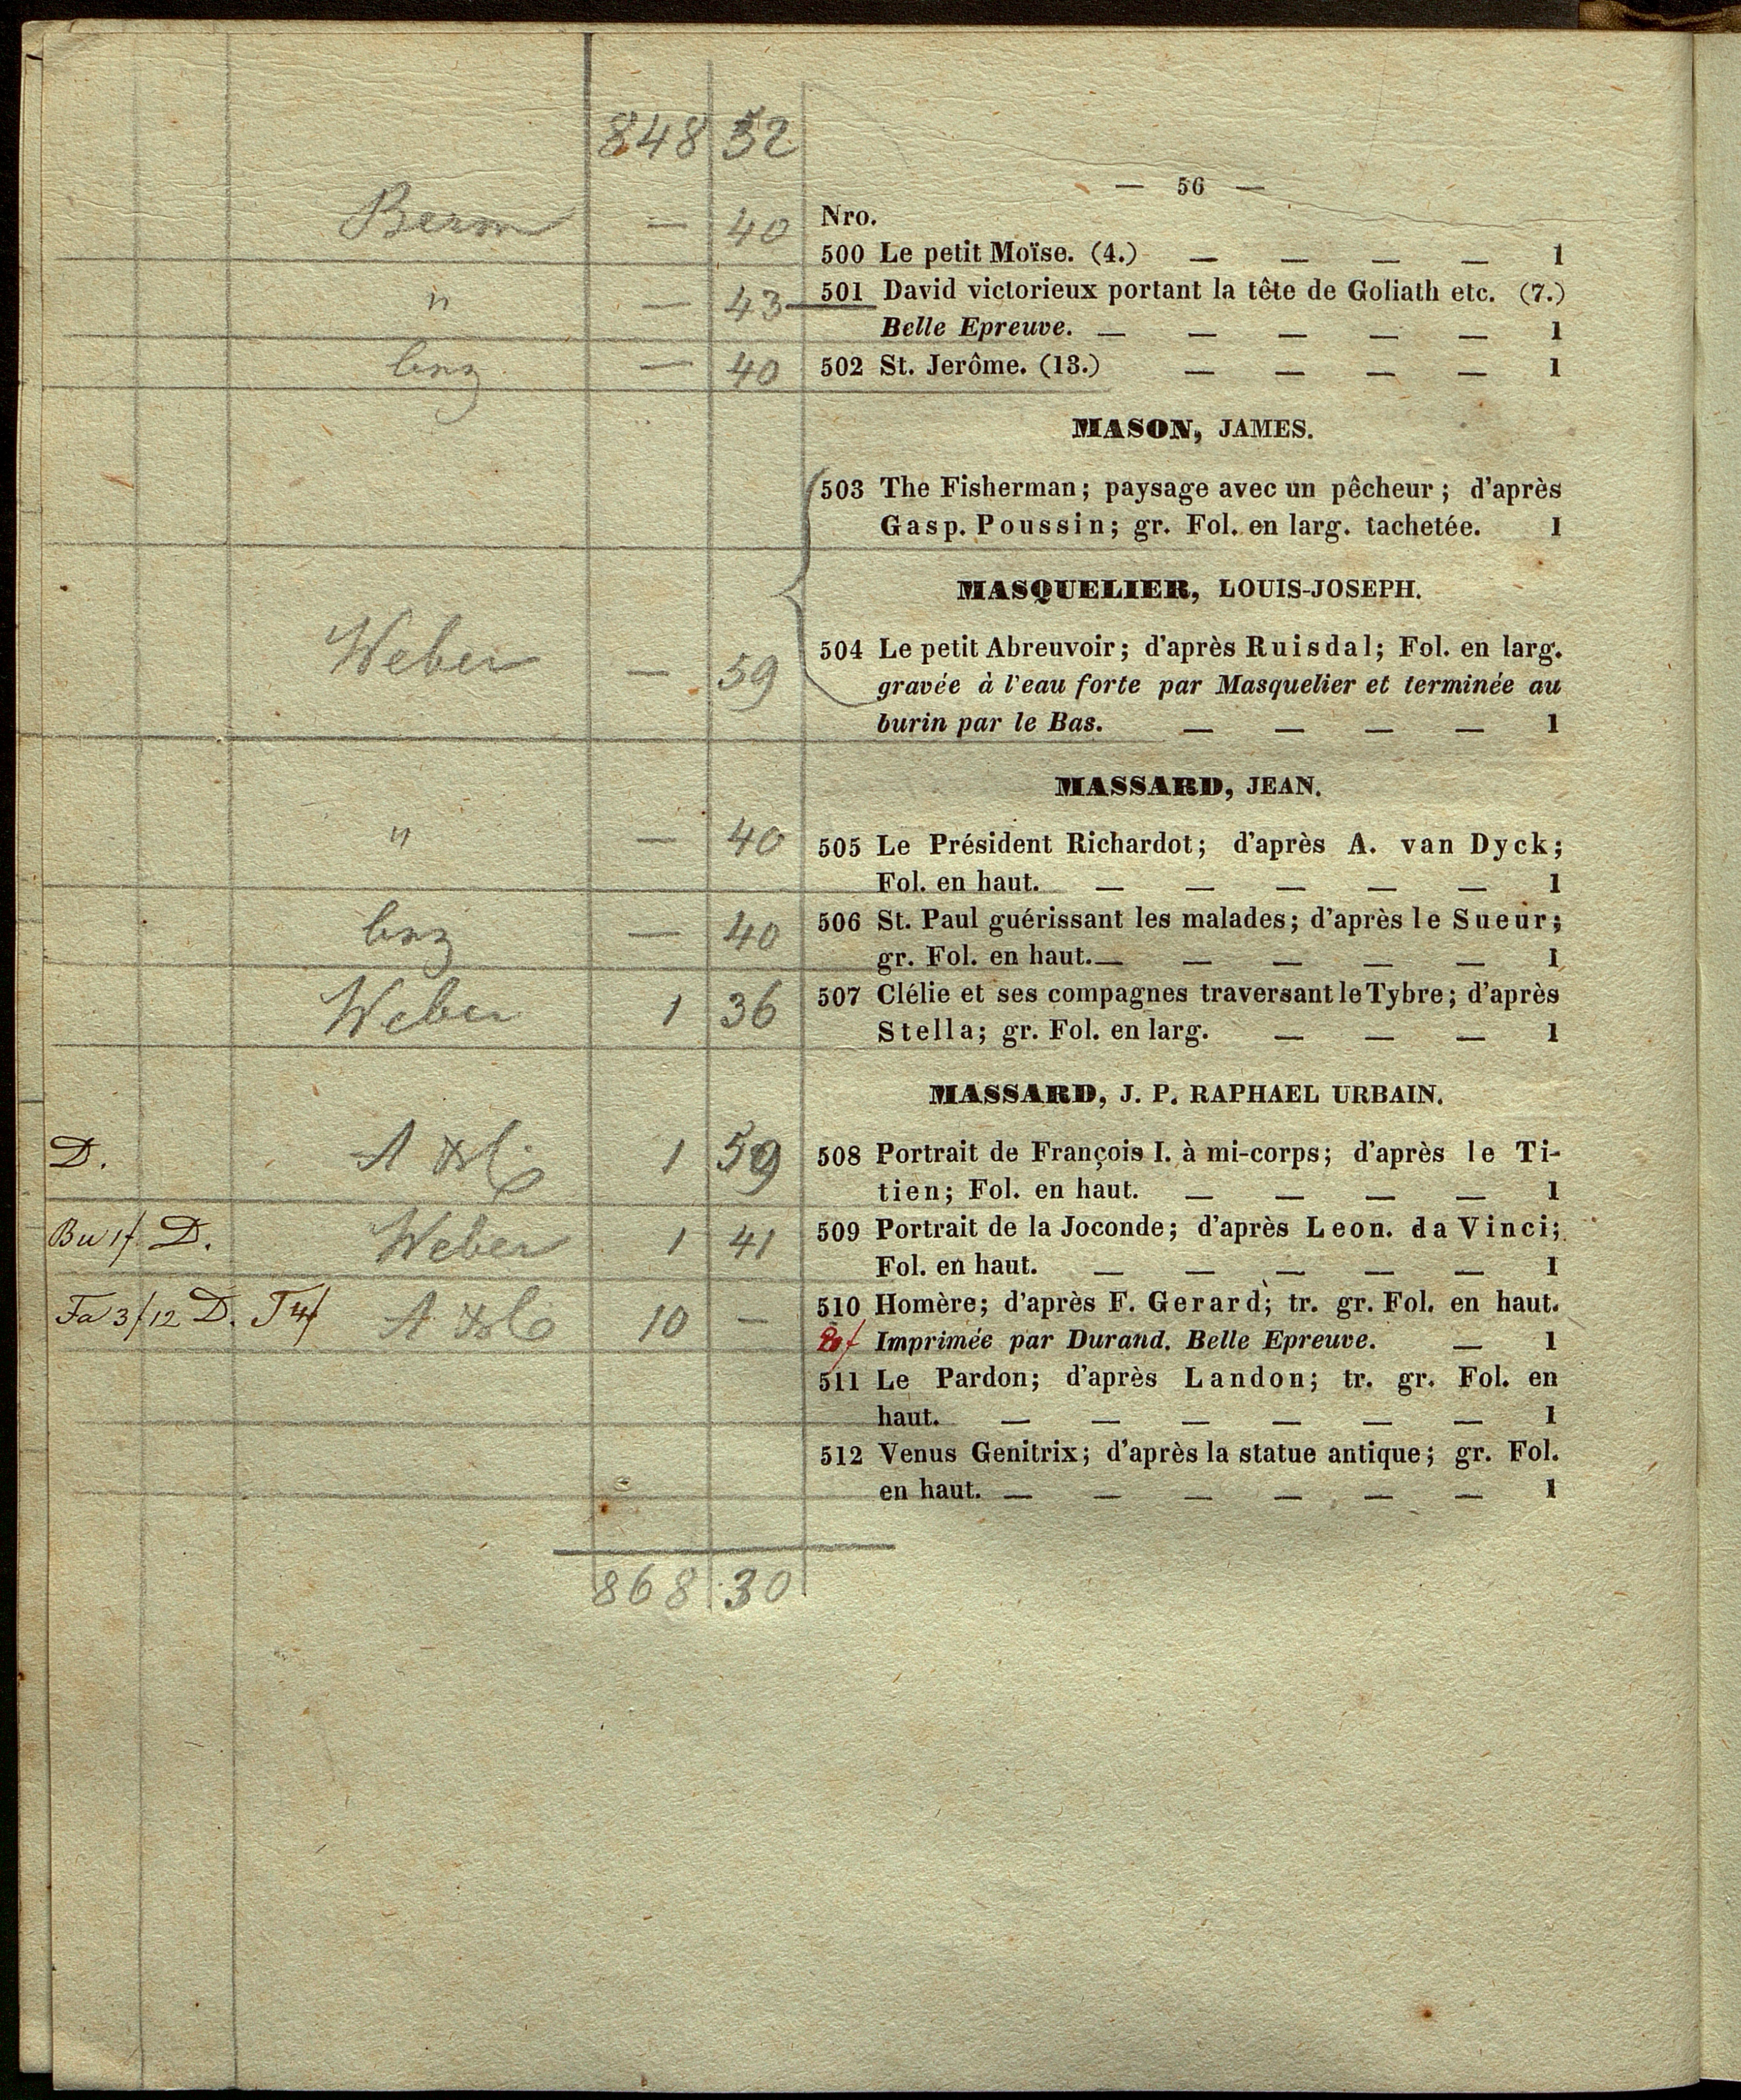 848 52
— 56 —
Nro.
Berm — 40
500 Le petit Moïse. (4.) — — — — 1
" — 43
501 David victorieux portant la tête de Goliath etc. (7.)
Belle Epreuve. — — — — — 1
— 40 502 St. Jerôme. (13.) — — — — 1
MASON, JAMES.
503 The Fisherman; paysage avec un pêcheur; d'après
Gasp. Poussin; gr. Fol. en larg. tachetée. 1
MASQUELIER, LOUIS-JOSEPH.
Weber — 59
504 Le petit Abreuvoir; d'après Ruisdal; Fol. en larg.
gravée à l'eau forte par Masquelier et terminée au
burin par le Bas. — — — — 1
MASSARD, JEAN.
" — 40 505 Le Président Richardot; d'après A. van Dyck;
Fol. en haut. — — — — — 1
— 40 506 St. Paul guérissant les malades; d'après le Sueur;
gr. Fol. en haut. — — — — — 1
Weber 1 36 507 Clélie et ses compagnes traversant le Tybre; d'après
Stella; gr. Fol. en larg. — — — 1
MASSARD, J. P. RAPHAEL URBAIN.
D. 1 59 508 Portrait de François I. à mi-corps; d'après le Ti-
tien; Fol. en haut. — — — — 1
D. Weber 1 41 509 Portrait de la Joconde; d'après Leon. da Vinci;
Fol. en haut. — — — — — 1
D. 10 — 510 Homère; d'après F. Gerard; tr. gr. Fol. en haut.
Imprimée par Durand. Belle Epreuve. — 1
511 Le Pardon; d'après Landon; tr. gr. Fol. en
haut. — — — — — — 1
512 Venus Genitrix; d'après la statue antique; gr. Fol.
en haut. — — — — — — 1
868 30